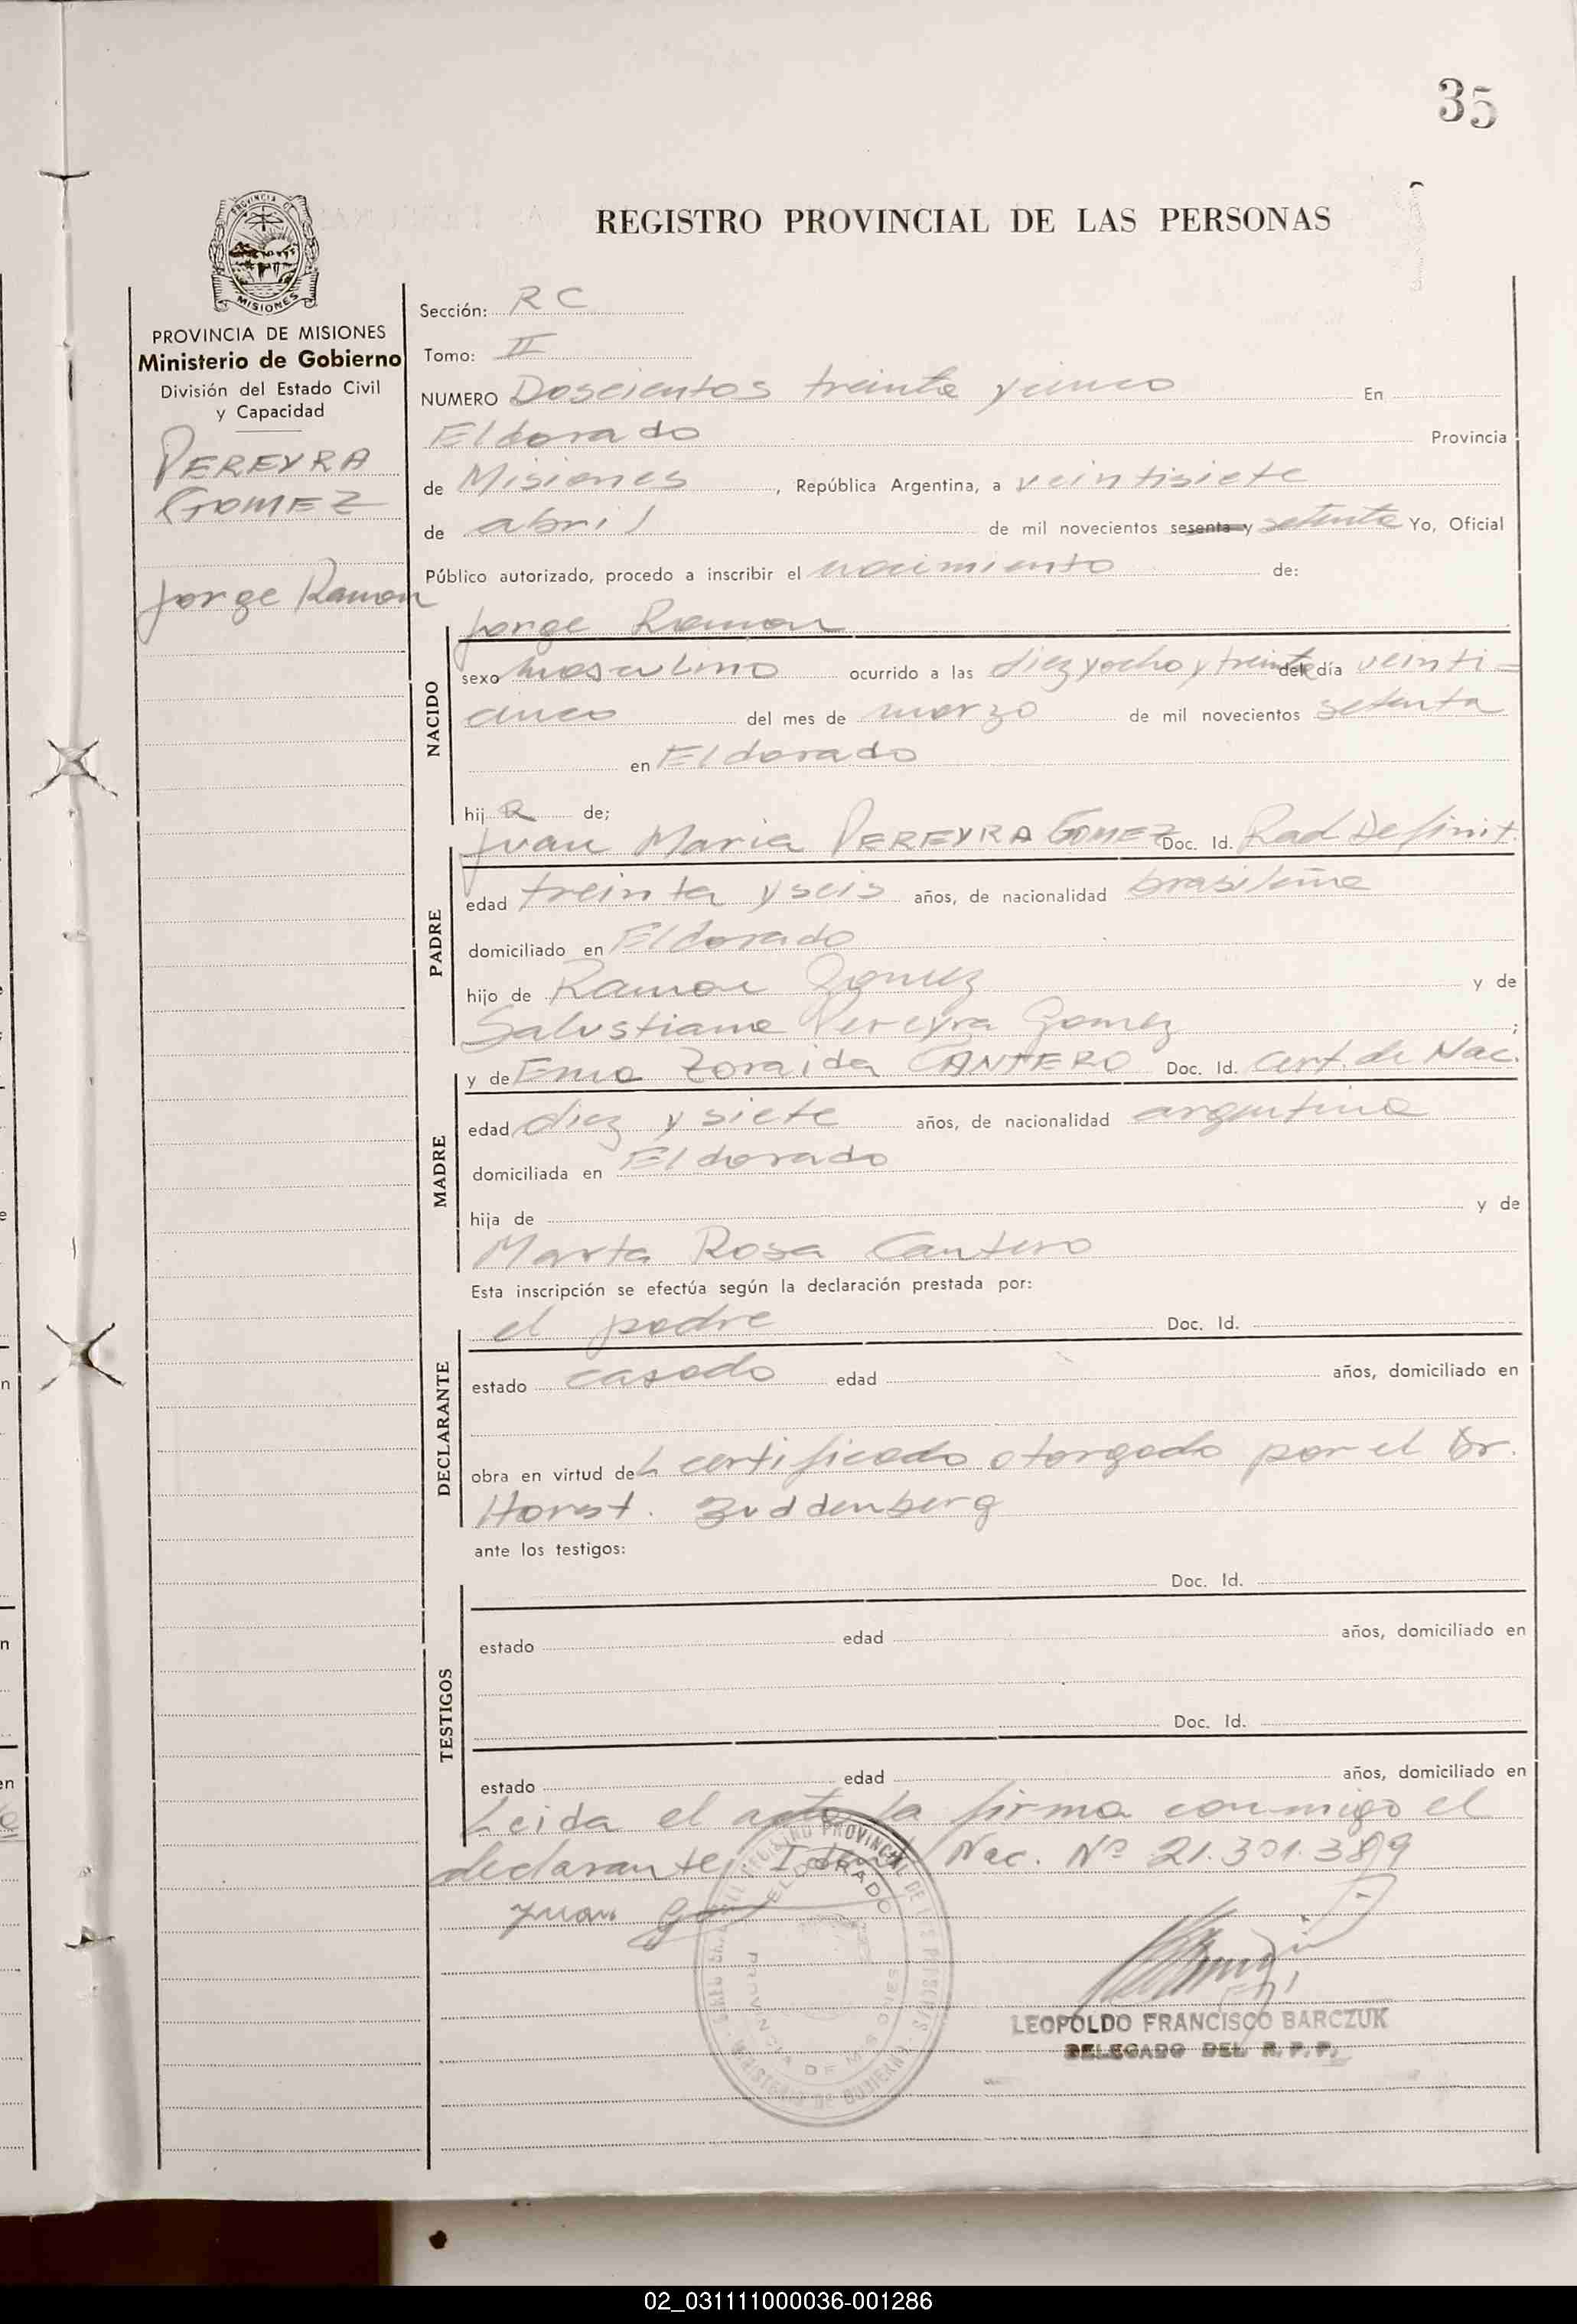 35
REGISTRO PROVINCIAL DE LAS PERSONAS
PROVINCIA DE
MISIONES
PROVINCIA DE MISIONES
Ministerio de Gobierno
División del Estado Civil
y Capacidad
PEREYRA
GOMEZ
Jorge Ramon
Sección: RC
Tomo: II
NUMERO Doscientos treinta y cinco En
Eldorado Provincia
de Misiones, República Argentina, a veintisiete
de abril de mil novecientos sesenta y setenta Yo, Oficial
Público autorizado, procedo a inscribir el nacimiento de:
Jorge Ramon
NACIDO
sexo masculino ocurrido a las diez y ocho y treinta del día veinti-
cinco del mes de marzo de mil novecientos setenta
en Eldorado
hij de;
Juan Maria PEREYRA GOMEZ Doc. Id. Rad Definit.
PADRE
edad treinta y seis años, de nacionalidad brasileña
domiciliado en Eldorado
hijo de Ramon Gomez y de
Salustiana Pereyra Gomez ;
y de Ema Zoraida CANTERO Doc. Id. Cert. de Nac.
MADRE
edad diez y siete años, de nacionalidad argentina
domiciliada en Eldorado
hija de y de
Marta Rosa Cantero
Esta inscripción se efectúa según la declaración prestada por:
el padre Doc. Id.
DECLARANTE
estado casado edad años, domiciliado en
obra en virtud del certificado otorgado por el Dr.
Horst. Buddenberg
ante los testigos:
Doc. Id.
TESTIGOS
estado edad años, domiciliado en
Doc. Id.
estado edad años, domiciliado en
Leida el acta la firma conmigo el
declarante, Ident Nac. Nº 21.301.389
Juan
ELDORADO
PROVINCIA DE MISIONES
LEOPOLDO FRANCISCO BARCZUK
DELEGADO DEL R.P.P.
02_031111000036-001286